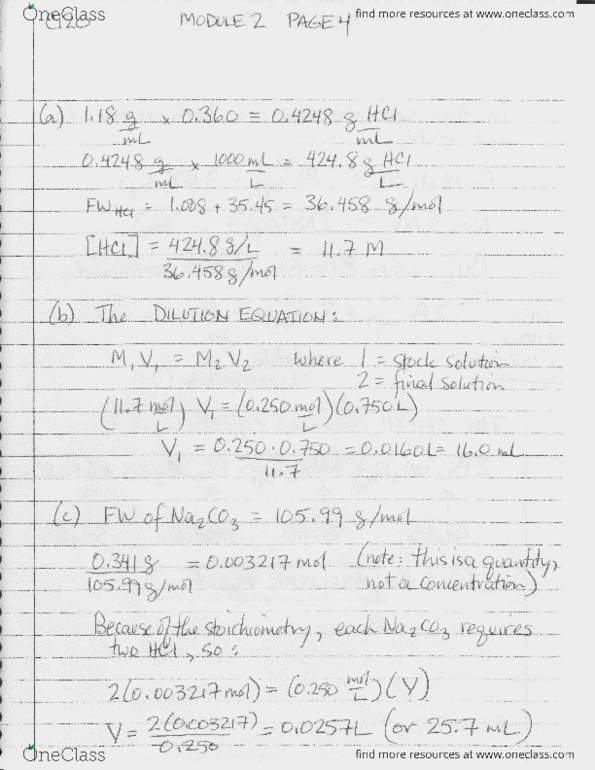 OneClass
find more resources at www.oneclass.com
MODULE 2 PAGE 4
(a) 1.18 g/mL × 0.360 = 0.4248 g HCl/mL
0.4248 g/mL × 1000 mL/L = 424.8 g HCl/L
FW HCl = 1.008 + 35.45 = 36.458 g/mol
[HCl] = 424.8 g/L / 36.458 g/mol = 11.7 M
(b) The DILUTION EQUATION:
M₁V₁ = M₂V₂ where 1 = stock solution
2 = final solution
(11.7 mol/L) V₁ = (0.250 mol/L)(0.750 L)
V₁ = 0.250 · 0.750 / 11.7 = 0.0160 L = 16.0 mL
(c) FW of Na₂CO₃ = 105.99 g/mol
0.341 g / 105.99 g/mol = 0.003217 mol (note: this is a quantity,
not a concentration)
Because of the stoichiometry, each Na₂CO₃ requires
two HCl, so:
2(0.003217 mol) = (0.250 mol/L)(V)
V = 2(0.003217) / 0.250 = 0.0257 L (or 25.7 mL)
OneClass
find more resources at www.oneclass.com